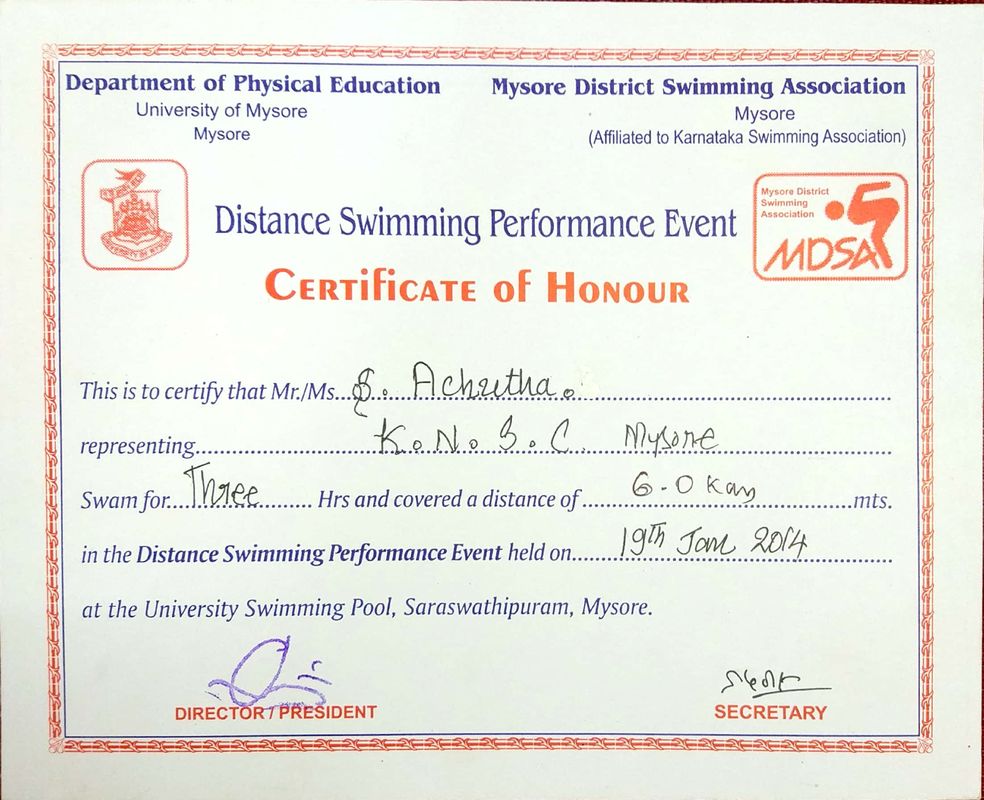 Department of Physical Education
University of Mysore
Mysore
Mysore District Swimming Association
Mysore
(Affiliated to Karnataka Swimming Association)
Mysore District
Swimming
Association
MDSA
Distance Swimming Performance Event
Certificate of Honour
This is to certify that Mr./Ms. S. Achutha.
representing K.N.S.C. Mysore
Swam for Three Hrs and covered a distance of 6.0 mts.
in the Distance Swimming Performance Event held on 19th Jan 2014
at the University Swimming Pool, Saraswathipuram, Mysore.
DIRECTOR / PRESIDENT
SECRETARY